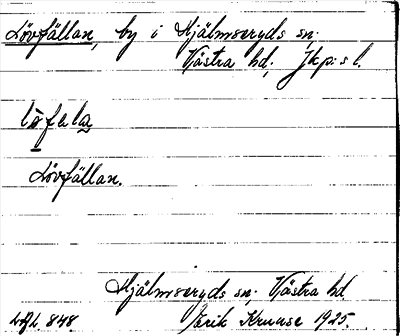 Lövfällan, by i Hjälmseryds sn;
Västra hd; Jkp:s l.
löfela
Lövfällan.
Hjälmseryds sn; Västra hd
Erik Kruuse 1925.